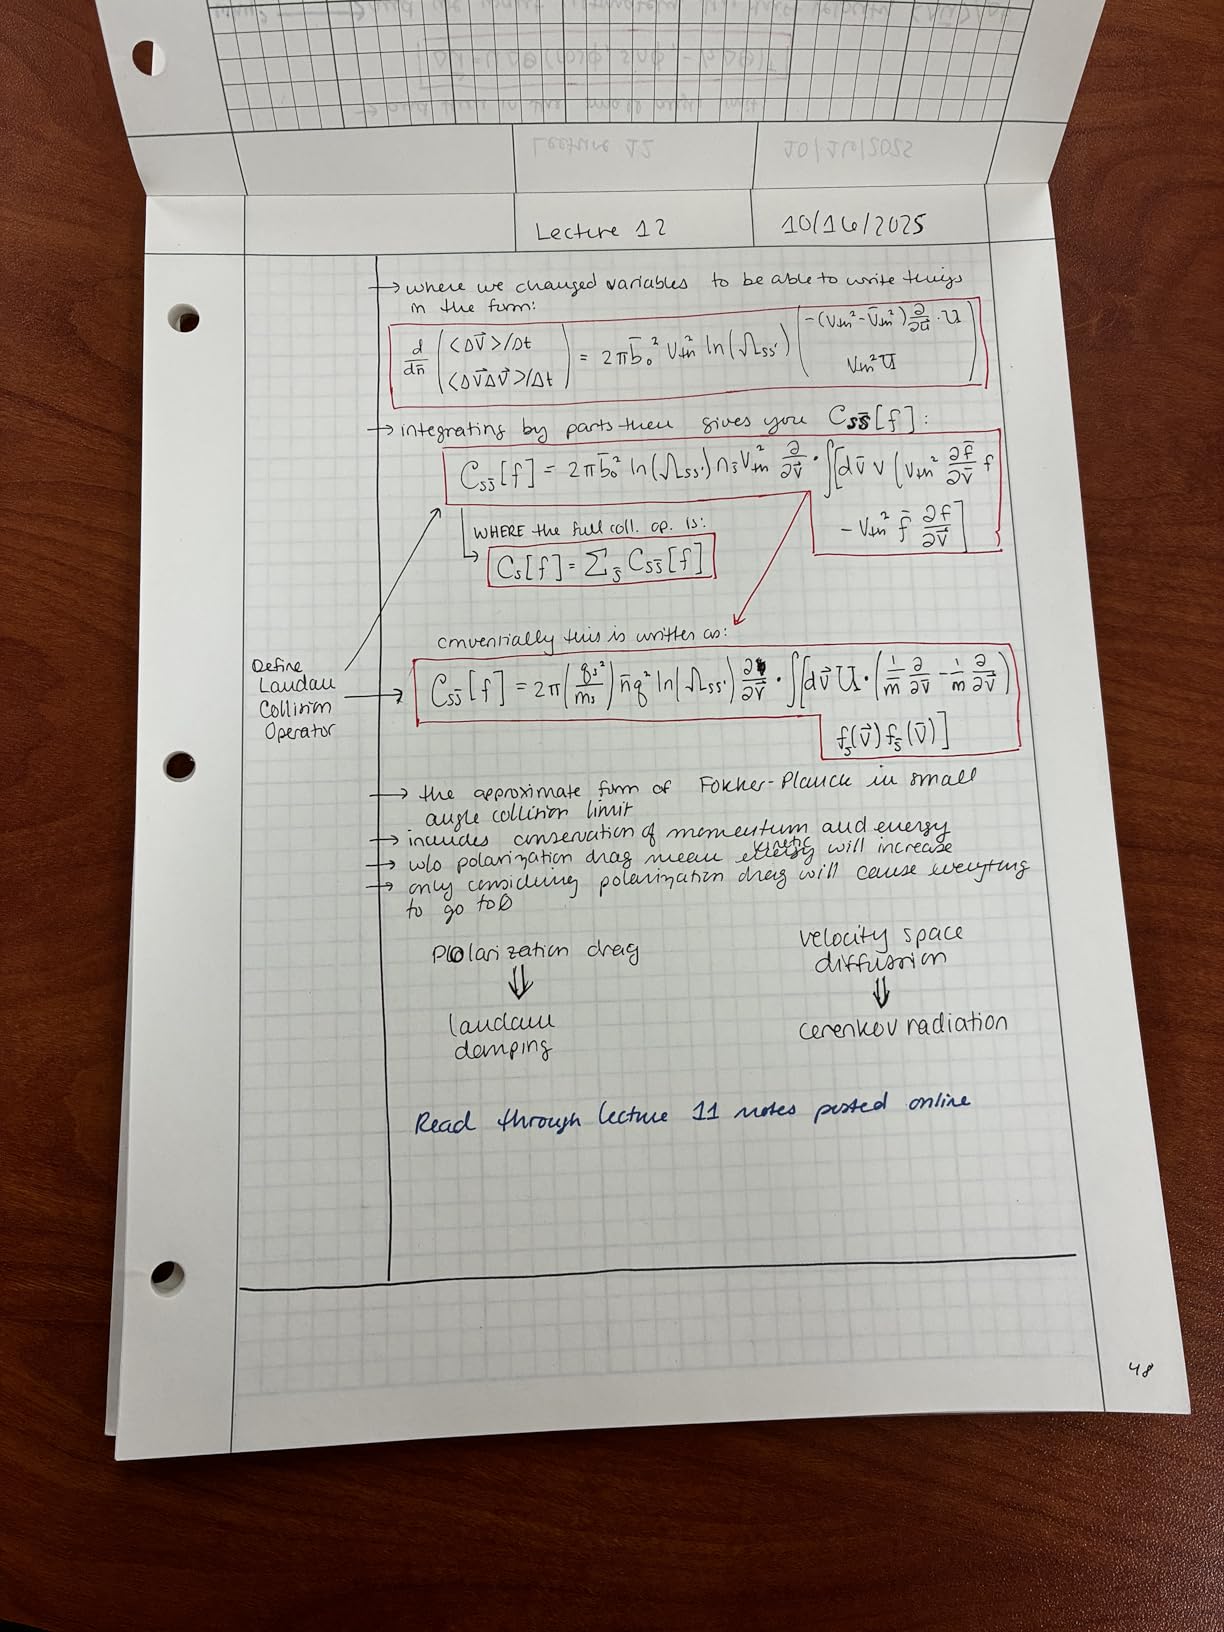 Lecture 12 10/16/2025
→ where we changed variables to be able to write things
in the form:
d/dn̄ (<Δv⃗>/Δt <Δv⃗Δv⃗>/Δt) = 2πb̄₀² V̄ₜₕ² ln(Λss') (-(Vₜₕ²-V̄ₜₕ²) ∂/∂u⃗ · U Vₜₕ²U)
→ integrating by parts then gives you Css̄[f]:
Css̄[f] = 2πb̄₀² ln(Λss') ns̄ V̄ₜₕ² ∂/∂v⃗ · ∫[dv̄ v (Vₜₕ² ∂f̄/∂v̄ f
- Vₜₕ² f̄ ∂f/∂v⃗]
WHERE the full coll. op. is:
Cs[f] = Σs̄ Css̄[f]
convenially this is written as:
Define
Landau
Collision
Operator
Css̄[f] = 2π(qs²/ms) n̄q̄² ln(Λss') ∂/∂v⃗ · ∫[dv⃗ U · (1/m̄ ∂/∂v̄ - 1/m ∂/∂v⃗)
fs(v⃗) fs̄(v̄)]
→ the approximate form of Fokker-Planck in small
angle collision limit
→ includes conservation of momentum and energy
→ w/o polarization drag mean kinetic energy will increase
→ only considering polarization drag will cause everything
to go to 0
polarization drag velocity space
diffusion
⇓ ⇓
landau cerenkov radiation
damping
Read through lecture 11 notes posted online
48